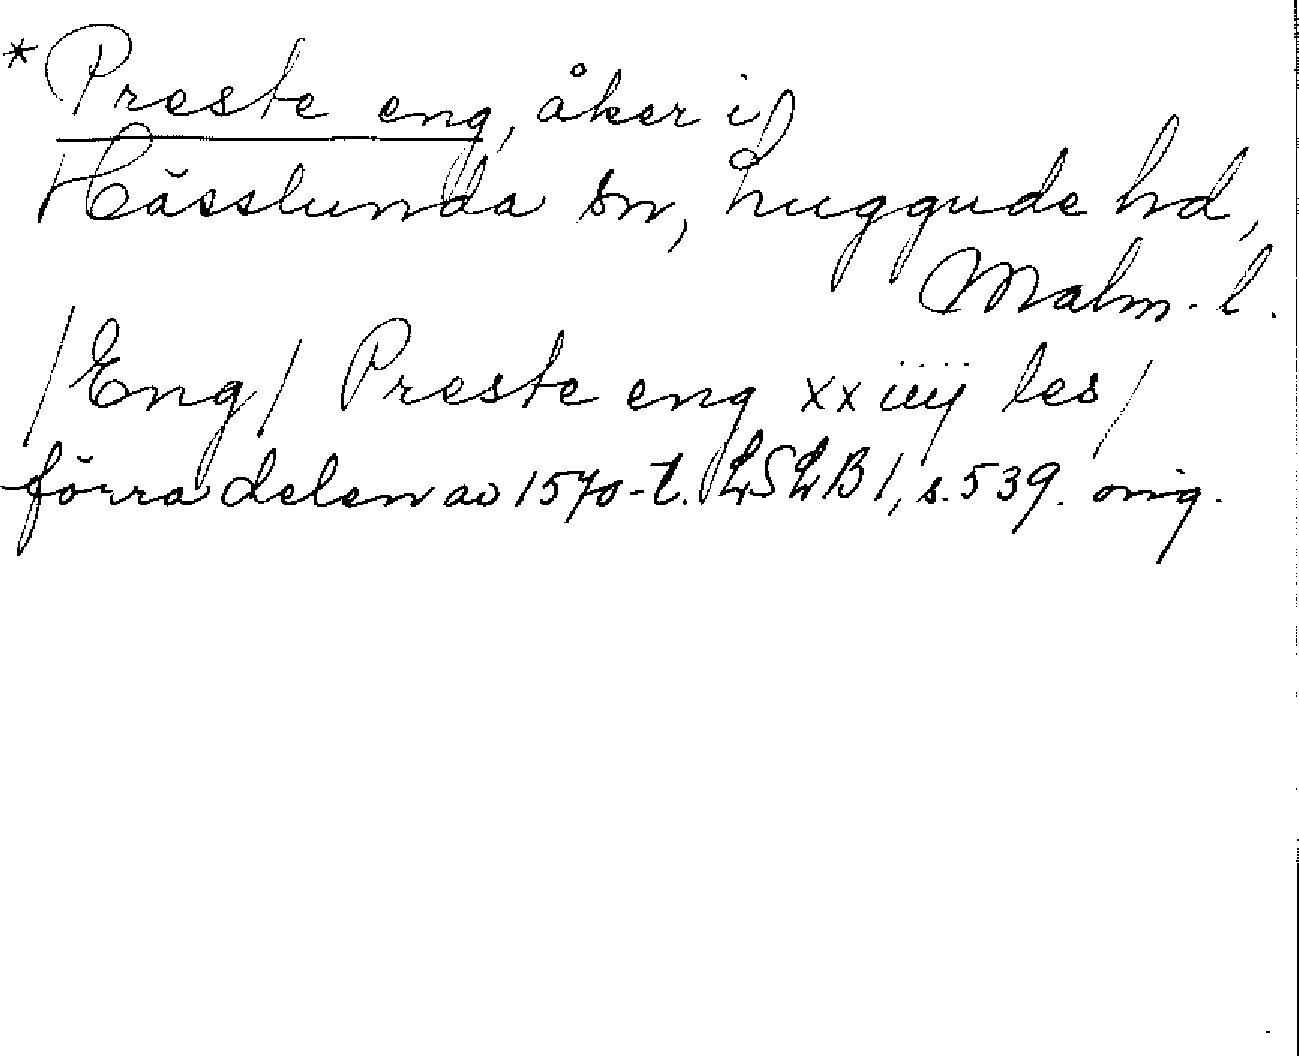 *Preste eng, åker i
Hässlunda sn, Luggude hd,
Malm. l.
/Eng/ Preste eng xx iiij les/
förra delen av 1570-t. LSLB 1, s. 539. orig.